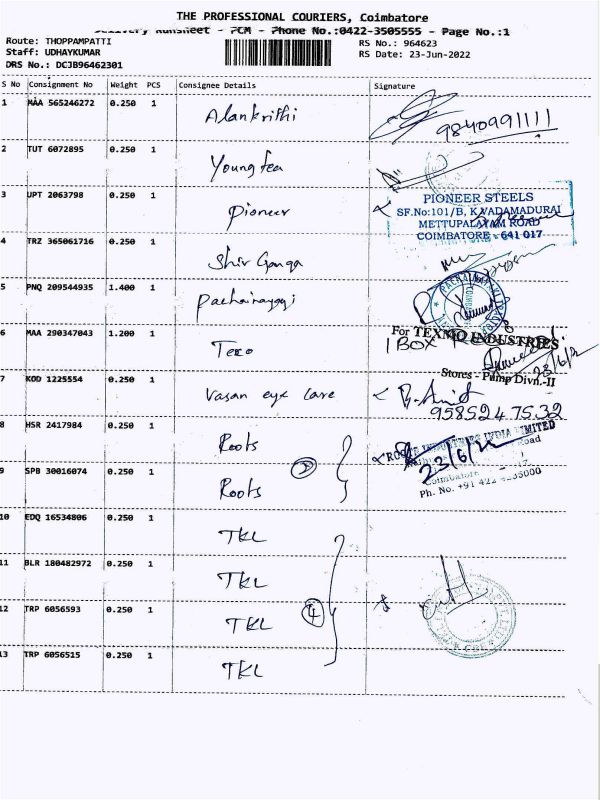 THE PROFESSIONAL COURIERS, Coimbatore
Delivery Runsheet - PCM - Phone No.:0422-3505555 - Page No.:1
Route: THOPPAMPATTI
Staff: UDHAYKUMAR
DRS No.: DCJB96462301
RS No.: 964623
RS Date: 23-Jun-2022
S No Consignment No Weight PCS Consignee Details Signature
1 MAA 565246272 0.250 1 Alankrithi 9840991111
2 TUT 6072895 0.250 1 Young tea
3 UPT 2063798 0.250 1 Pioneer
PIONEER STEELS
SF.No:101/B, K.VADAMADURAI
METTUPALAYAM ROAD
COIMBATORE - 641 017
4 TRZ 365061716 0.250 1 Shiv Ganga
5 PNQ 209544935 1.400 1 Pachainayagi
6 MAA 290347043 1.200 1 Texo
For TEXMO INDUSTRIES
1 BOX
23/6/22
Stores - Pump Divn.-II
7 KOD 1225554 0.250 1 Vasan eye care
9585247532
8 HSR 2417984 0.250 1 Roots
ROOTS INDUSTRIES INDIA LIMITED
Road
23/6/22
Coimbatore
Ph. No. +91 422
9 SPB 30016074 0.250 1 Roots
2
10 EDQ 16534806 0.250 1 TKL
11 BLR 180482972 0.250 1 TKL
12 TRP 6056593 0.250 1 TKL
4
13 TRP 6056515 0.250 1 TKL